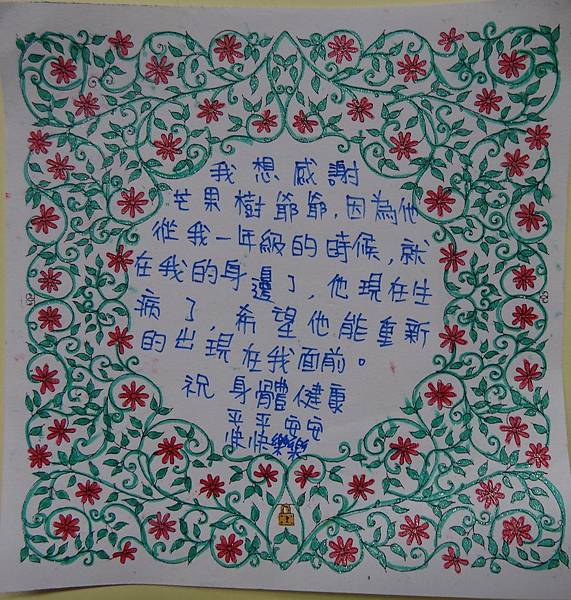 我想感謝
芒果樹爺爺，因為他
從我一年級的時候，就
在我的身邊了，他現在生
病了，希望他能重新
的出現在我面前。
祝 身體健康
平平安安
快快樂樂